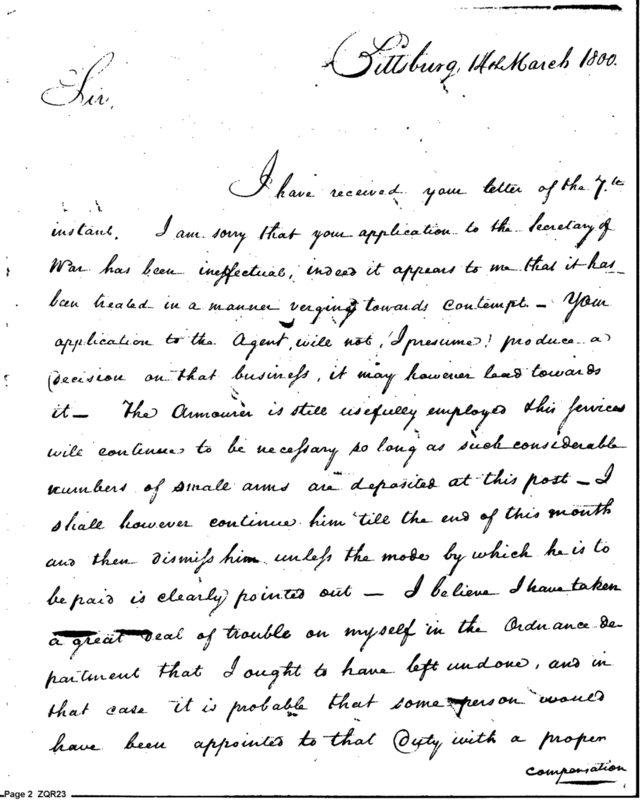 Pittsburg, 14th March 1800.
Sir,
I have received your letter of the 7th
instant. I am sorry that your application to the Secretary of
War has been ineffectual, indeed it appears to me that it has
been treated in a manner verging towards contempt — Your
application to the Agent, will not, (I presume) produce a
decision on that business, it may however lead towards
it — The Armourer is still usefully employed this services
will continue to be necessary so long as such considerable
numbers of small arms are deposited at this post — I
shall however continue him 'till the end of this month
and then dismiss him unless the mode by which he is to
be paid is clearly pointed out — I believe I have taken
a great deal of trouble on myself in the Ordnance de-
partment that I ought to have left undone, and in
that case it is probable that some person would
have been appointed to that Duty with a proper
compensation
Page 2 ZQR23